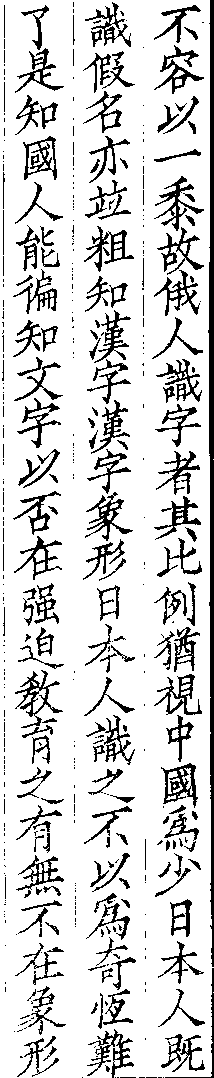 不容以一黍故俄人識字者其比例猶視中國爲少日本人既
識假名亦竝粗知漢字漢字象形日本人識之不以爲奇恆難
了是知國人能徧知文字以否在强迫敎育之有無不在象形